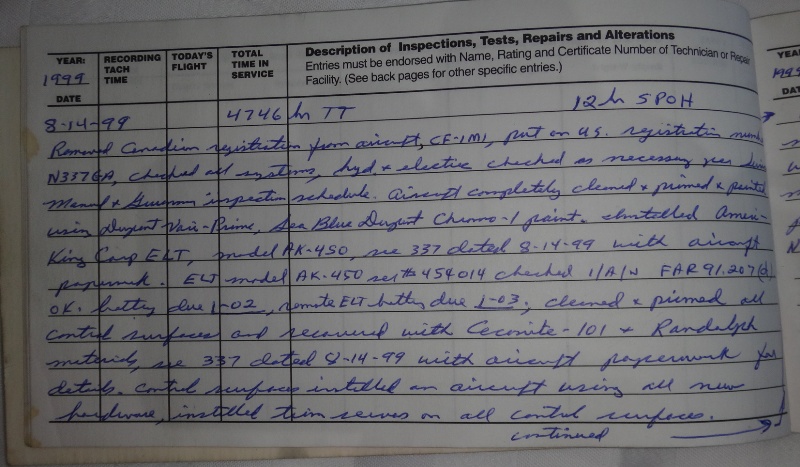 YEAR: RECORDING TACH TIME TODAY'S FLIGHT TOTAL TIME IN SERVICE Description of Inspections, Tests, Repairs and Alterations
1999 Entries must be endorsed with Name, Rating and Certificate Number of Technician or Repair
DATE Facility. (See back pages for other specific entries.)
8-14-99 4746 hr TT 12 hr SPOH
Removed Canadian registration from aircraft, CF-IMI, put on U.S. registration
checked all systems, hyd. & electric checked as necessary per
Manual & Grumman inspection schedule. Aircraft completely cleaned & primed & painted
using Dupont Vari-Prime, Sea Blue Dupont Chroma-1 paint. Installed Ameri-
King Corp ELT, model AK-450, see 337 dated 8-14-99 with aircraft
paperwork. ELT model AK-450 ser# 454014 checked I/A/W FAR 91.207(d)
OK. battery due 1-02, remote ELT battery due 1-03; cleaned & primed all
control surfaces and recovered with Ceconite-101 & Randolph
materials, see 337 dated 8-14-99 with aircraft paperwork for
details. Control surfaces installed on aircraft using all new
hardware, installed trim servos on all control surfaces.
continued